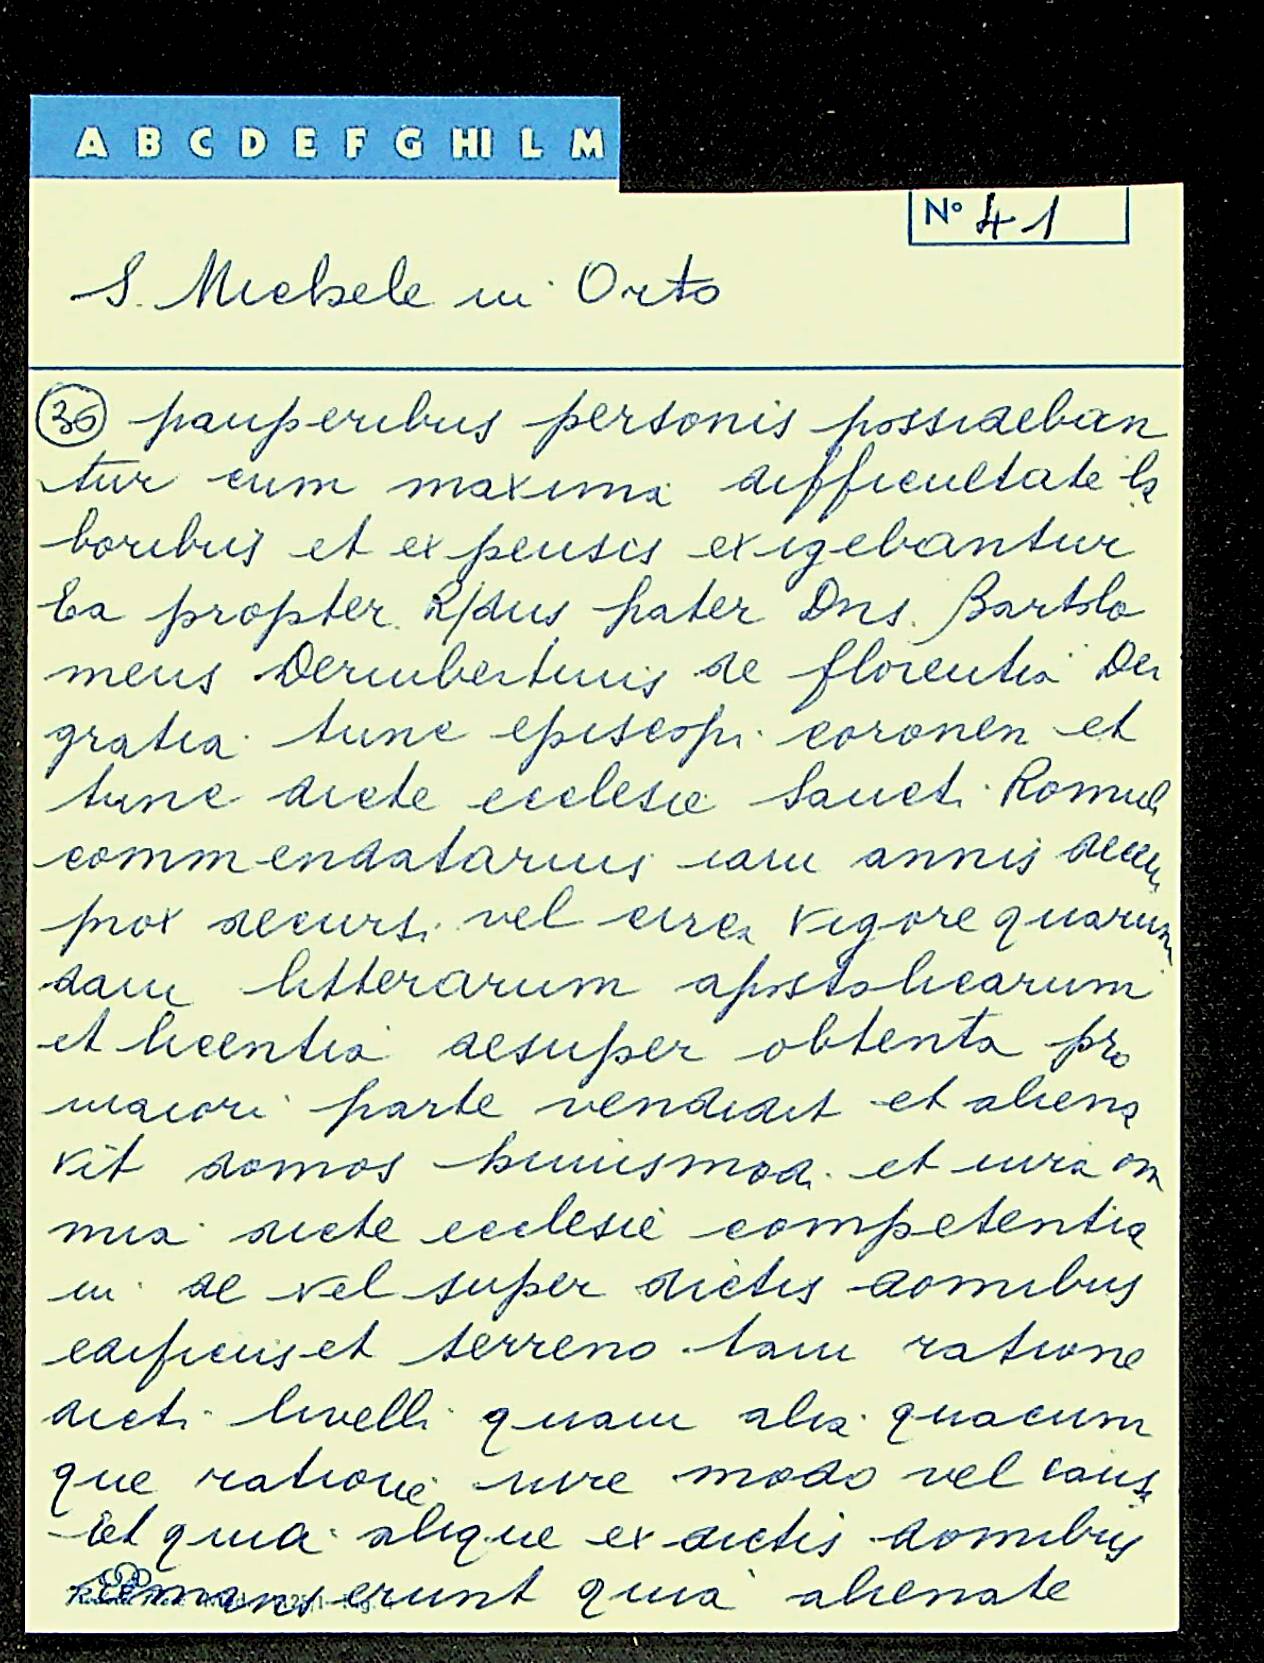 A B C D E F G HI L M
N° 41
S. Michele in Orto
36 pauperibus personis possideban
tur cum maxima difficultate la
boribus et expensis exigebantur
Ea propter R/dus pater Dns. Bartolo
meus Derimbertinis de florentia Dei
gratia tunc episcopi coronen et
tunc dicte ecclesie Sancti Romuli
commendatarius iam annis decem
prox decursi vel circa vigore quarum
dam litterarum apostolicarum
et licentia desuper obtenta pro
maiori parte vendidit et aliena
vit domos huiusmodi et iura om
nia dicte ecclesie competentia
in de vel super dictis domibus
edificiis et terreno tam ratione
dicti livelli quam alia quacum
que ratione iure modo vel causa
Et quia alique ex dictis domibus
remanserunt quia alienate